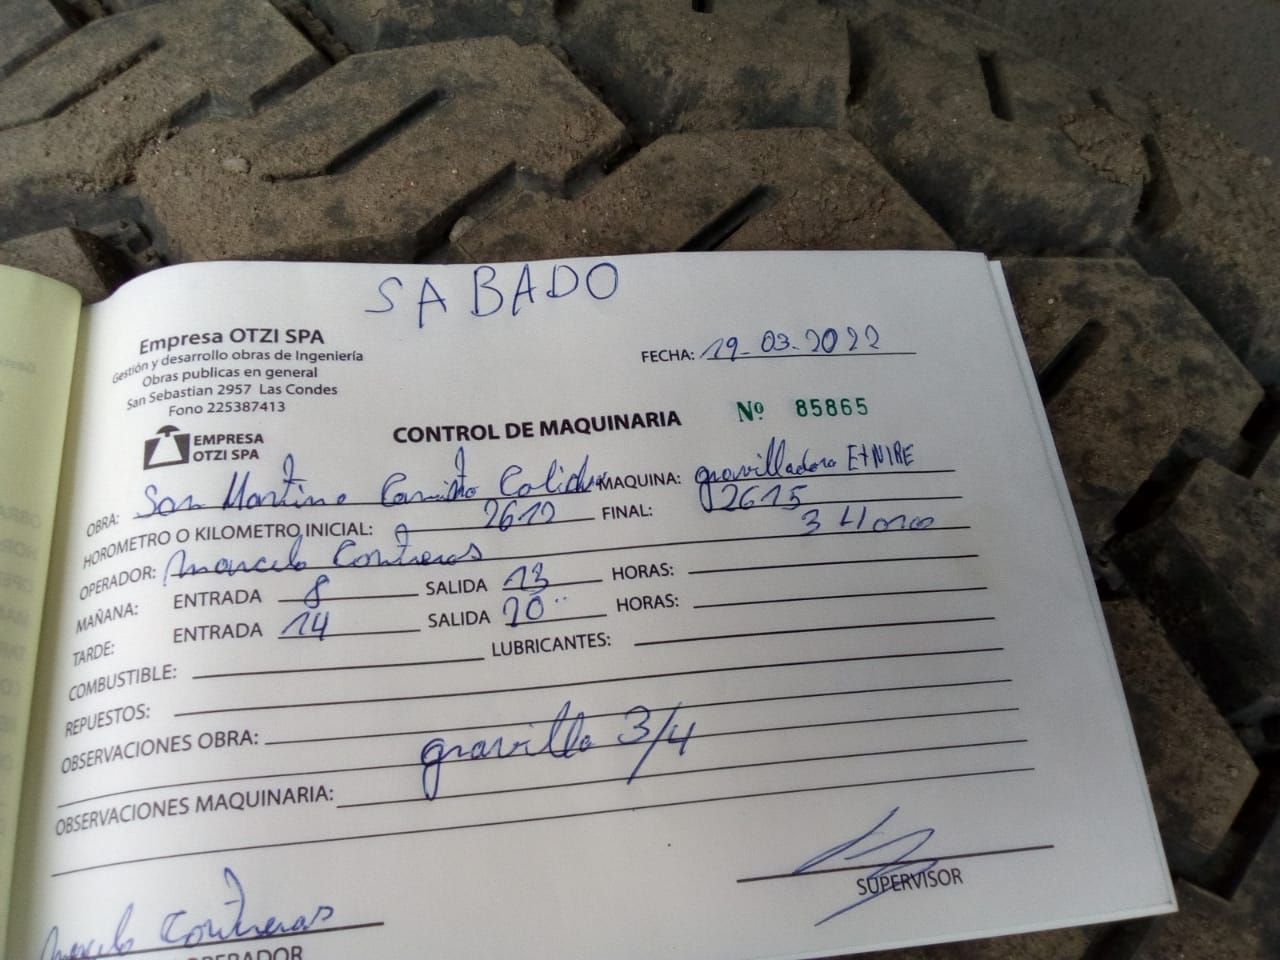 SABADO
Empresa OTZI SPA
Gestión y desarrollo obras de Ingeniería
Obras publicas en general
San Sebastian 2957 Las Condes
Fono 225387413
FECHA: 19-03-2022
EMPRESA
OTZI SPA
CONTROL DE MAQUINARIA
Nº 85865
OBRA: San Martino Camino MAQUINA: gravilladora ETNIRE
HOROMETRO O KILOMETRO INICIAL: 2612 FINAL: 2615
3 Horas
OPERADOR: Marcelo Contreras
MAÑANA: ENTRADA 8 SALIDA 13 HORAS:
TARDE: ENTRADA 14 SALIDA HORAS:
COMBUSTIBLE: LUBRICANTES:
REPUESTOS:
OBSERVACIONES OBRA:
gravilla 3/4
OBSERVACIONES MAQUINARIA:
Marcelo Contreras
OPERADOR
SUPERVISOR